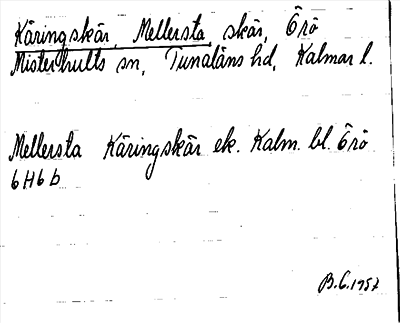 Käringskär, Mellersta skär, Örö
Misterhults sn, Tunaläns hd, Kalmar l.
Mellersta Käringskär ek. Kalm. bl. Örö
6H6b
B.C. 1957